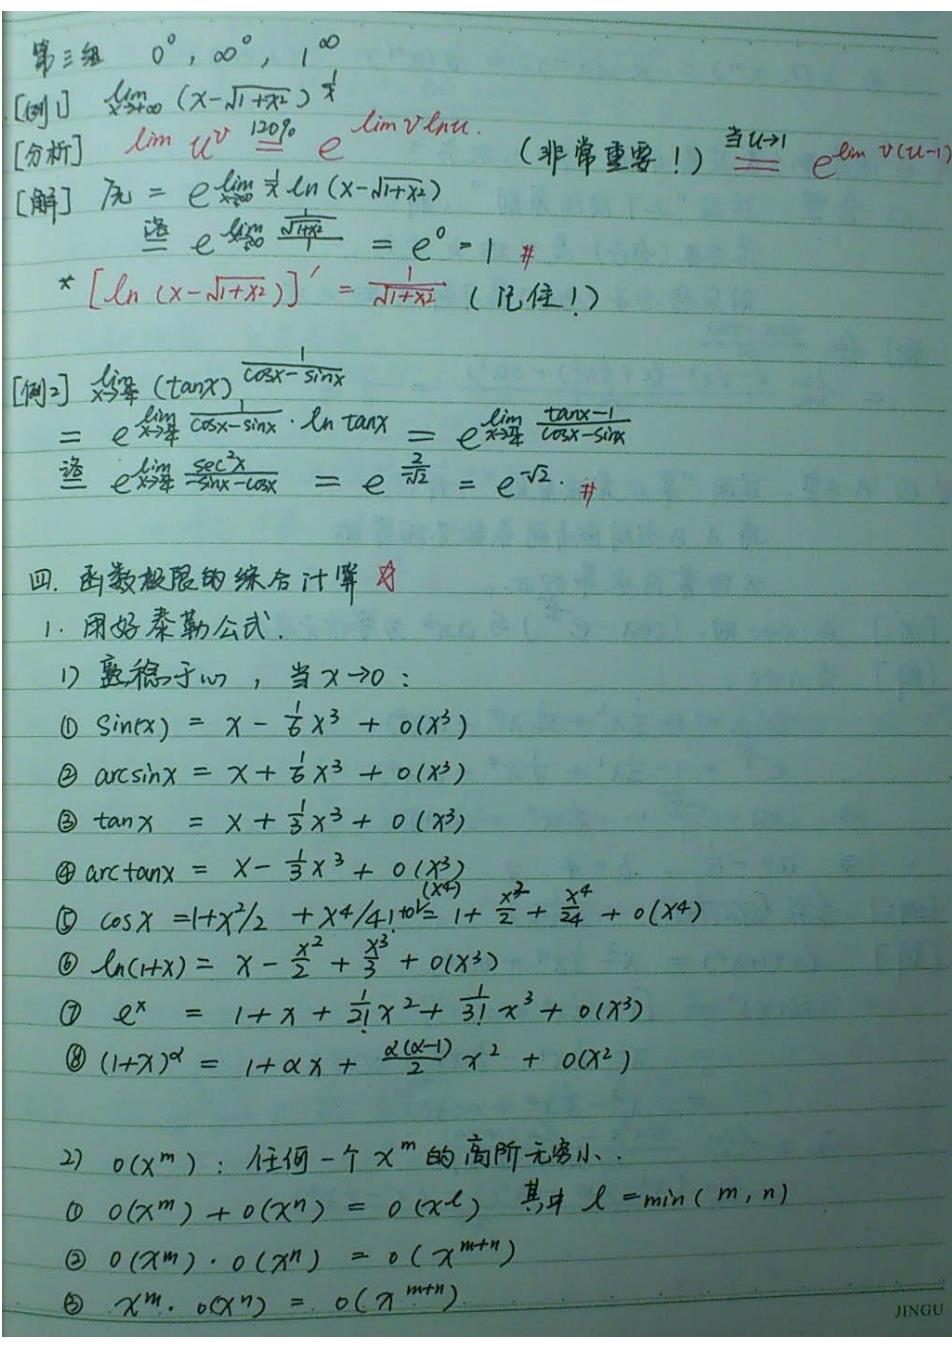 第三组 0⁰, ∞⁰, 1^∞
[例1] lim_{x→+∞} (x-√(1+x²))^{1/x}
[分析] lim u^v =(120%) e^{lim v ln u}. (非常重要!) =(当u→1) e^{lim v(u-1)}
[解] 原 = e^{lim_{x→∞} 1/x ln(x-√(1+x²))}
=(洛) e^{lim_{x→∞} (1/√(1+x²))/1} = e⁰ = 1 #
* [ln(x-√(1+x²))]′ = 1/√(1+x²) (记住!)
[例2] lim_{x→π/4} (tanx)^{1/(cosx-sinx)}
= e^{lim_{x→π/4} 1/(cosx-sinx) · ln tanx} = e^{lim_{x→π/4} (tanx-1)/(cosx-sinx)}
=(洛) e^{lim_{x→π/4} sec²x/(-sinx-cosx)} = e^{2/-√2} = e^{-√2}. #
四. 函数极限的综合计算 ☆
1. 用好泰勒公式.
1) 熟稔于心, 当x→0:
① sin(x) = x - 1/6 x³ + o(x³)
② arcsinx = x + 1/6 x³ + o(x³)
③ tanx = x + 1/3 x³ + o(x³)
④ arctanx = x - 1/3 x³ + o(x³)
⑤ cosx = 1+x²/2 + x⁴/4! + o(x⁴) = 1 + x²/2 + x⁴/24 + o(x⁴)
⑥ ln(1+x) = x - x²/2 + x³/3 + o(x³)
⑦ eˣ = 1 + x + 1/2! x² + 1/3! x³ + o(x³)
⑧ (1+x)^α = 1 + αx + α(α-1)/2 x² + o(x²)
2) o(x^m): 任何一个x^m的高阶无穷小.
① o(x^m) + o(x^n) = o(x^l) 其中 l = min(m,n)
② o(x^m) · o(x^n) = o(x^{m+n})
③ x^m · o(x^n) = o(x^{m+n})
JINGU